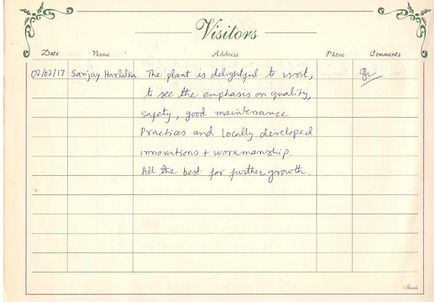 Visitors
Date Name Address Phone Comments
02/02/17 Sanjay The plant is delightful to visit,
to see the emphasis on quality,
safety, good maintenance
Practices and locally developed
innovations + workmanship.
All the best for further growth.